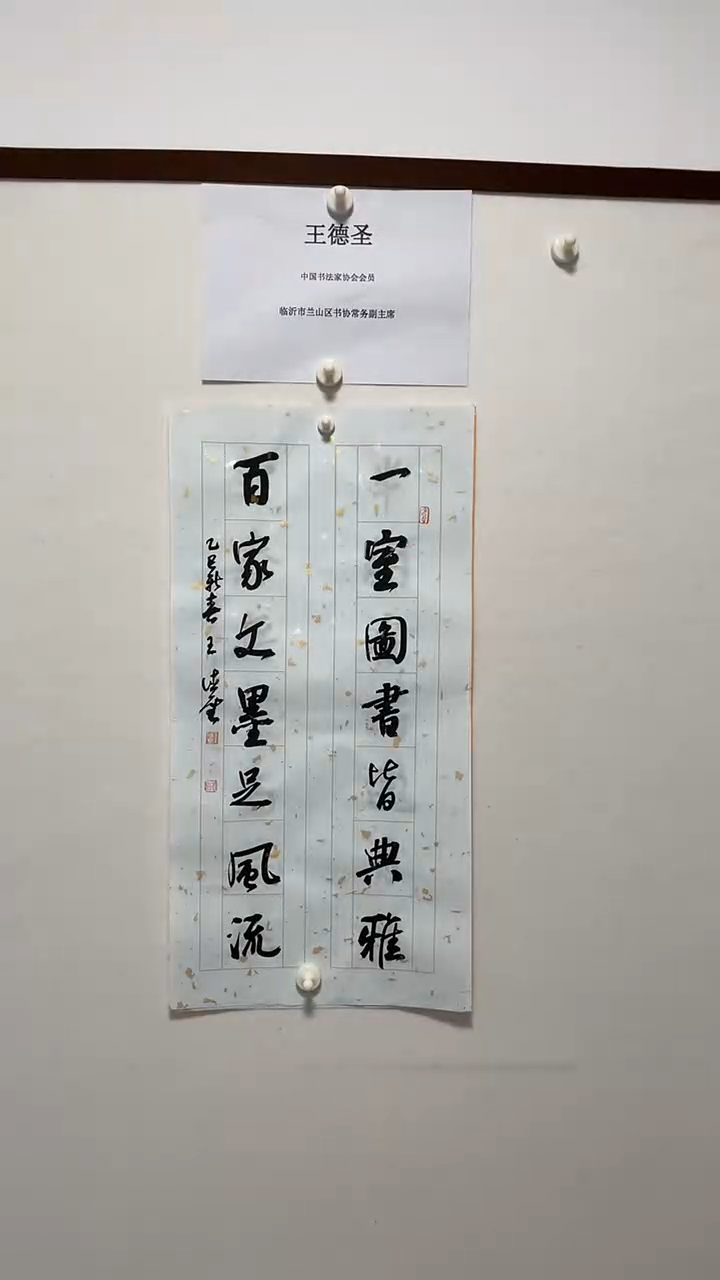 王德圣
中国书法家协会会员
临沂市兰山区书协常务副主席
一室圖書皆典雅
百家文墨足風流
乙巳新春王德聖